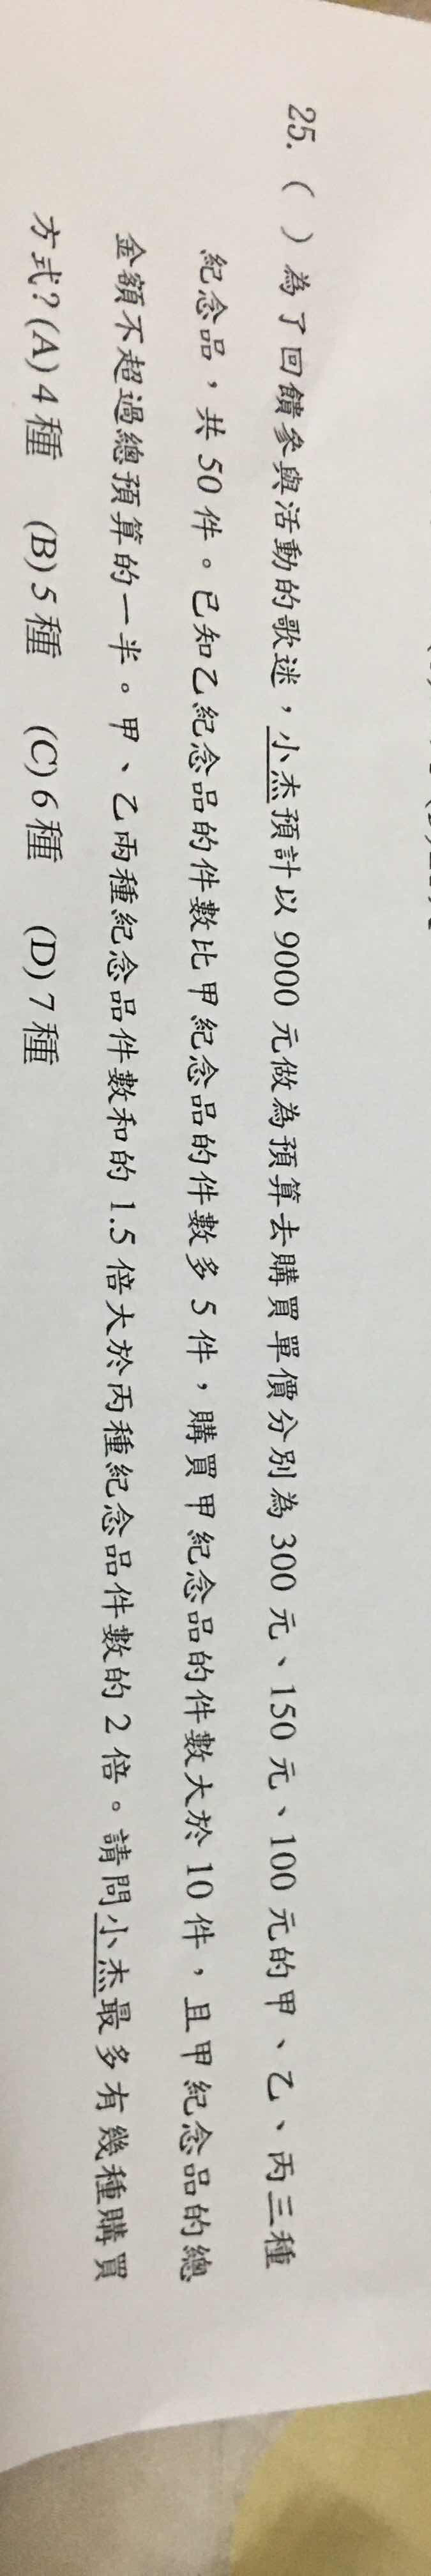 25. ( ) 為了回饋參與活動的歌迷，小杰預計以 9000 元做為預算去購買單價分別為 300 元、150 元、100 元的甲、乙、丙三種
紀念品，共 50 件。已知乙紀念品的件數比甲紀念品的件數多 5 件，購買甲紀念品的件數大於 10 件，且甲紀念品的總
金額不超過總預算的一半。甲、乙兩種紀念品件數和的 1.5 倍大於丙種紀念品件數的 2 倍。請問小杰最多有幾種購買
方式?(A) 4 種 (B) 5 種 (C) 6 種 (D) 7 種